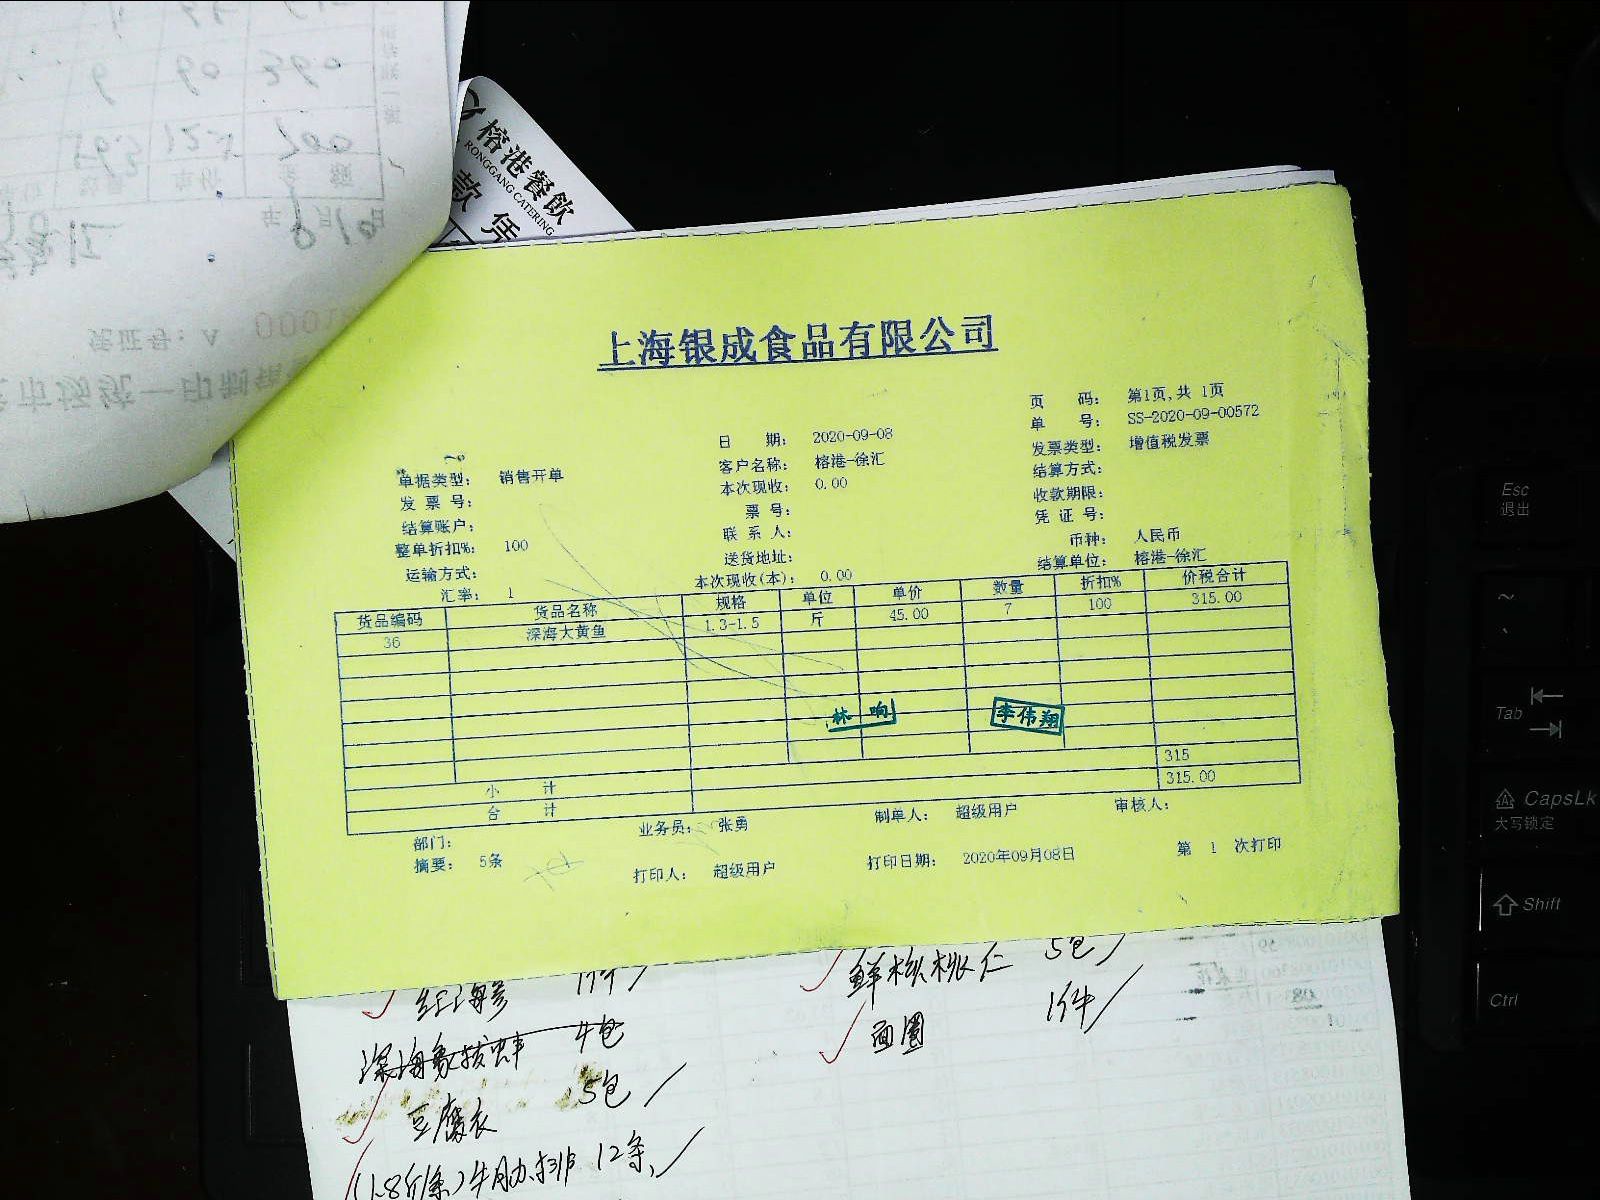 榕港餐飲
RONGGANG CATERING
款 凭
上海银成食品有限公司
页 码： 第1页,共 1页
日 期： 2020-09-08 单 号： SS-2020-09-00572
单据类型： 销售开单 客户名称： 榕港-徐汇 发票类型： 增值税发票
发 票 号： 本次现收： 0.00 结算方式：
结算账户： 票 号： 收款期限：
整单折扣%： 100 联 系 人： 凭 证 号：
运输方式： 送货地址： 币种： 人民币
汇率： 1 本次现收(本)： 0.00 结算单位： 榕港-徐汇
货品编码 货品名称 规格 单位 单价 数量 折扣% 价税合计
36 深海大黄鱼 1.3-1.5 斤 45.00 7 100 315.00
林 响 李伟翔
小 计 315
合 计 315.00
部门： 业务员： 张勇 制单人： 超级用户 审核人：
摘要： 5条 打印人： 超级用户 打印日期： 2020年09月08日 第 1 次打印
红海参 1件 鲜核桃仁 5包
深海象拔蚌 4包 面圈 1件
豆腐衣 5包
(1-8斤/条)牛肋排 12条
Esc
退出
~
Tab
CapsLk
大写锁定
Shift
Ctrl